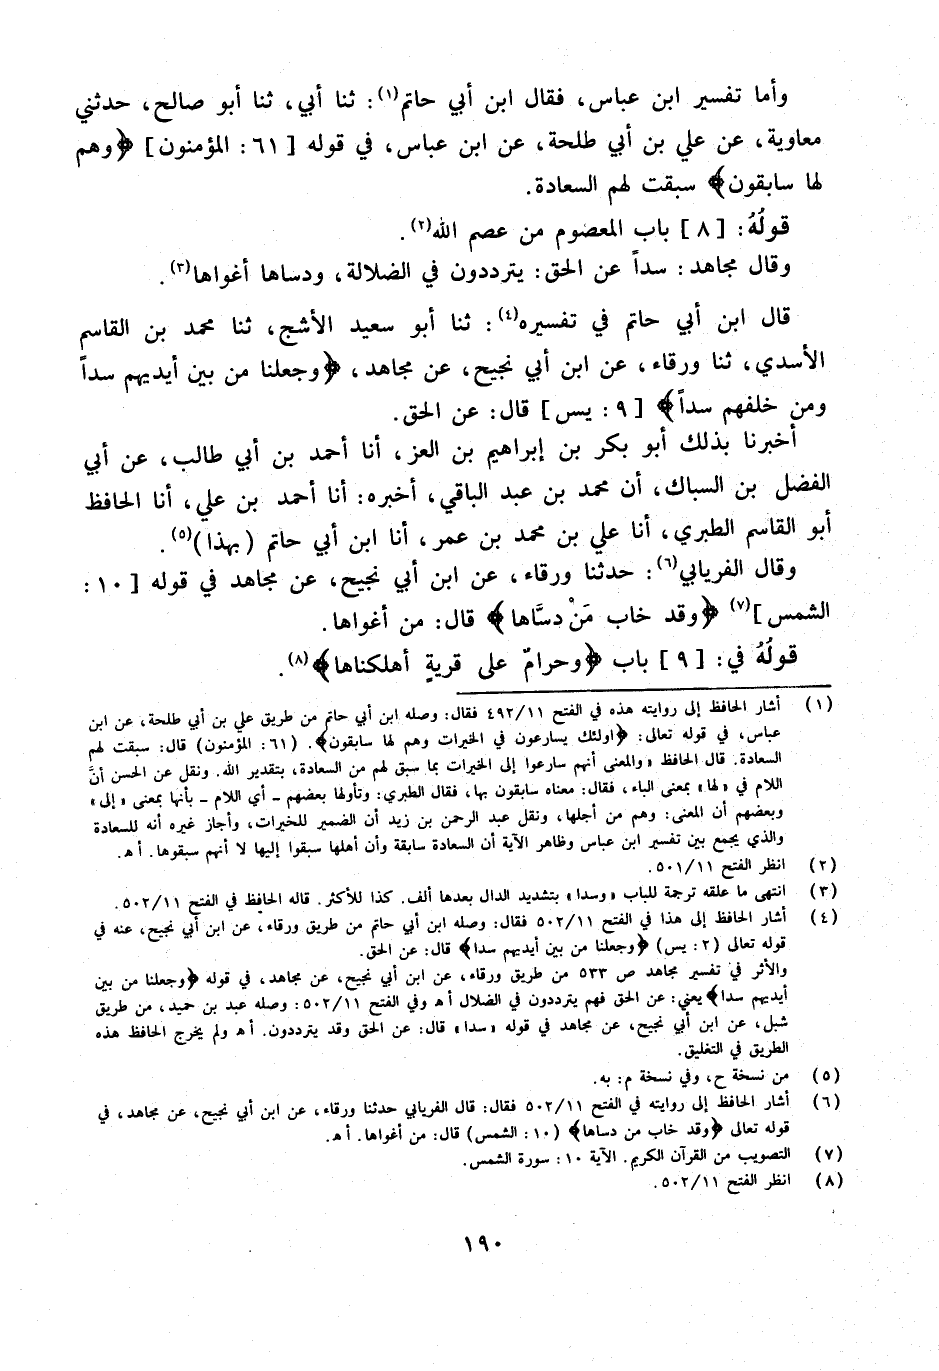 وأما تفسير ابن عباس، فقال ابن أبي حاتم(١): ثنا أبي، ثنا أبو صالح، حدثني
معاوية، عن علي بن أبي طلحة، عن ابن عباس، في قوله [ ٦١ : المؤمنون] ﴿وهم
لها سابقون﴾ سبقت لهم السعادة.
قولُهُ: [ ٨ ] باب المعصوم من عصم الله(٢).
وقال مجاهد: سداً عن الحق: يترددون في الضلالة، ودساها أغواها(٣).
قال ابن أبي حاتم في تفسيره(٤): ثنا أبو سعيد الأشج، ثنا محمد بن القاسم
الأسدي، ثنا ورقاء، عن ابن أبي نجيح، عن مجاهد، ﴿وجعلنا من بين أيديهم سداً
ومن خلفهم سداً﴾ [ ٩ : يس] قال: عن الحق.
أخبرنا بذلك أبو بكر بن إبراهيم بن العز، أنا أحمد بن أبي طالب، عن أبي
الفضل بن السباك، أن محمد بن عبد الباقي، أخبره: أنا أحمد بن علي، أنا الحافظ
أبو القاسم الطبري، أنا علي بن محمد بن عمر، أنا ابن أبي حاتم (بهذا)(٥).
وقال الفريابي(٦): حدثنا ورقاء، عن ابن أبي نجيح، عن مجاهد في قوله [ ١٠ :
الشمس](٧) ﴿وقد خاب مَنْ دسَّاها﴾ قال: من أغواها.
قولُهُ في: [ ٩ ] باب ﴿وحرامٌ على قريةٍ أهلكناها﴾(٨).
(١) أشار الحافظ إلى روايته هذه في الفتح ٤٩٢/١١ فقال: وصله ابن أبي حاتم من طريق علي بن أبي طلحة، عن ابن
عباس، في قوله تعالى: ﴿اولئك يسارعون في الخيرات وهم لها سابقون﴾. (٦١: المؤمنون) قال: سبقت لهم
السعادة. قال الحافظ «والمعنى أنهم سارعوا إلى الخيرات بما سبق لهم من السعادة، بتقدير الله. ونقل عن الحسن أنَّ
اللام في «لها» بمعنى الباء، فقال: معناه سابقون بها، فقال الطبري: وتأولها بعضهم - أي اللام - بأنها بمعنى «إلى»
وبعضهم أن المعنى: وهم من أجلها، ونقل عبد الرحمن بن زيد أن الضمير للخيرات، وأجاز غيره أنه للسعادة
والذي يجمع بين تفسير ابن عباس وظاهر الآية أن السعادة سابقة وأن أهلها سبقوا إليها لا أنهم سبقوها. أ هـ.
(٢) انظر الفتح ٥٠١/١١.
(٣) انتهى ما علقه ترجمة للباب «وسدا» بتشديد الدال بعدها ألف. كذا للأكثر. قاله الحافظ في الفتح ٥٠٢/١١.
(٤) أشار الحافظ إلى هذا في الفتح ٥٠٢/١١ فقال: وصله ابن أبي حاتم من طريق ورقاء، عن ابن أبي نجيح، عنه في
قوله تعالى (٢: يس) ﴿وجعلنا من بين أيديهم سدا﴾ قال: عن الحق.
والأثر في تفسير مجاهد ص ٥٣٣ من طريق ورقاء، عن ابن أبي نجيح، عن مجاهد، في قوله ﴿وجعلنا من بين
أيديهم سدا﴾ يعني: عن الحق فهم يترددون في الضلال أ هـ وفي الفتح ٥٠٢/١١: وصله عبد بن حميد، من طريق
شبل، عن ابن أبي نجيح، عن مجاهد في قوله «سدا» قال: عن الحق وقد يترددون. أ هـ ولم يخرج الحافظ هذه
الطريق في التغليق.
(٥) من نسخة ح، وفي نسخة م: به.
(٦) أشار الحافظ إلى روايته في الفتح ٥٠٢/١١ فقال: قال الفريابي حدثنا ورقاء، عن ابن أبي نجيح، عن مجاهد، في
قوله تعالى ﴿وقد خاب من دساها﴾ (١٠: الشمس) قال: من أغواها. أ هـ.
(٧) التصويب من القرآن الكريم. الآية ١٠: سورة الشمس.
(٨) انظر الفتح ٥٠٢/١١.
١٩٠